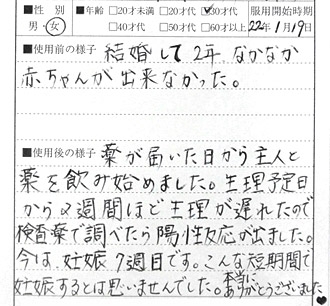 ■性 別 ■年齢 □20才未満 □20才代 ☑30才代 服用開始時期
男・女 □40才代 □50才代 □60才以上 22年1月19日
■使用前の様子 結婚して2年、なかなか
赤ちゃんが出来なかった。
■使用後の様子 薬が届いた日から主人と
薬を飲み始めました。生理予定日
から2週間ほど生理が遅れたので
検査薬で調べたら陽性反応が出ました。
今は、妊娠7週目です。こんな短期間で
妊娠するとは思いませんでした。本当にありがとうございました♥